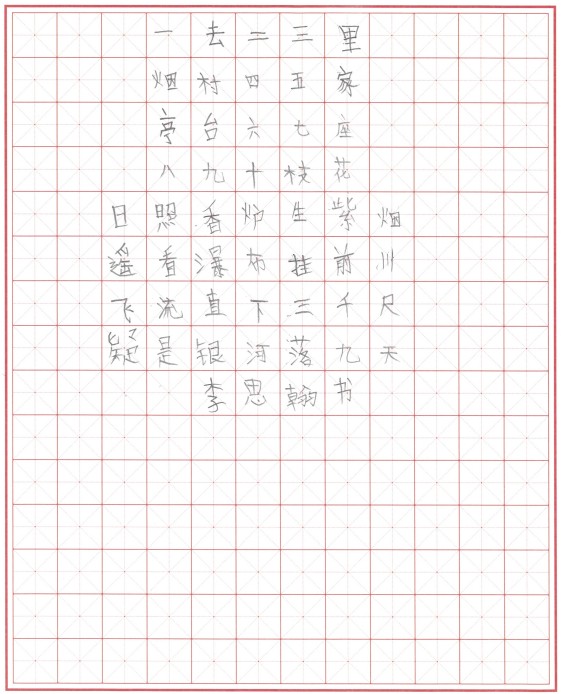 一去二三里
烟村四五家
亭台六七座
八九十枝花
日照香炉生紫烟
遥看瀑布挂前川
飞流直下三千尺
疑是银河落九天
李思翰书